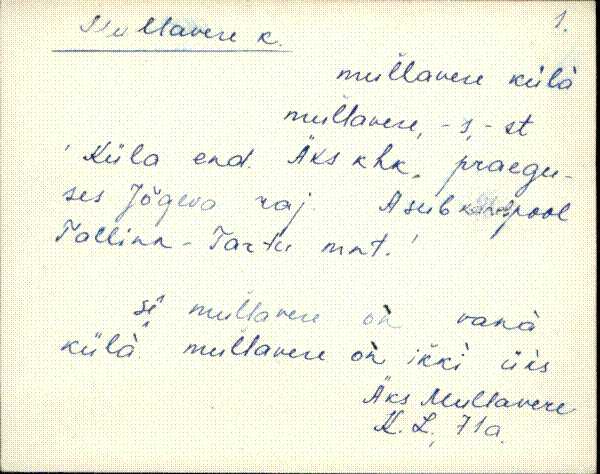 Mullavere k. 1.
mullavere külà
mullavere, -s, -st
'Küla end. Äks khk., praegu-
ses Jõgeva raj. Asub pool
Tallinn-Tartu mnt.'
si̬i̬ mullavere òn vanà
külà mullavere òn ikkì üks
Äks Mullavere
K. L., 71a.